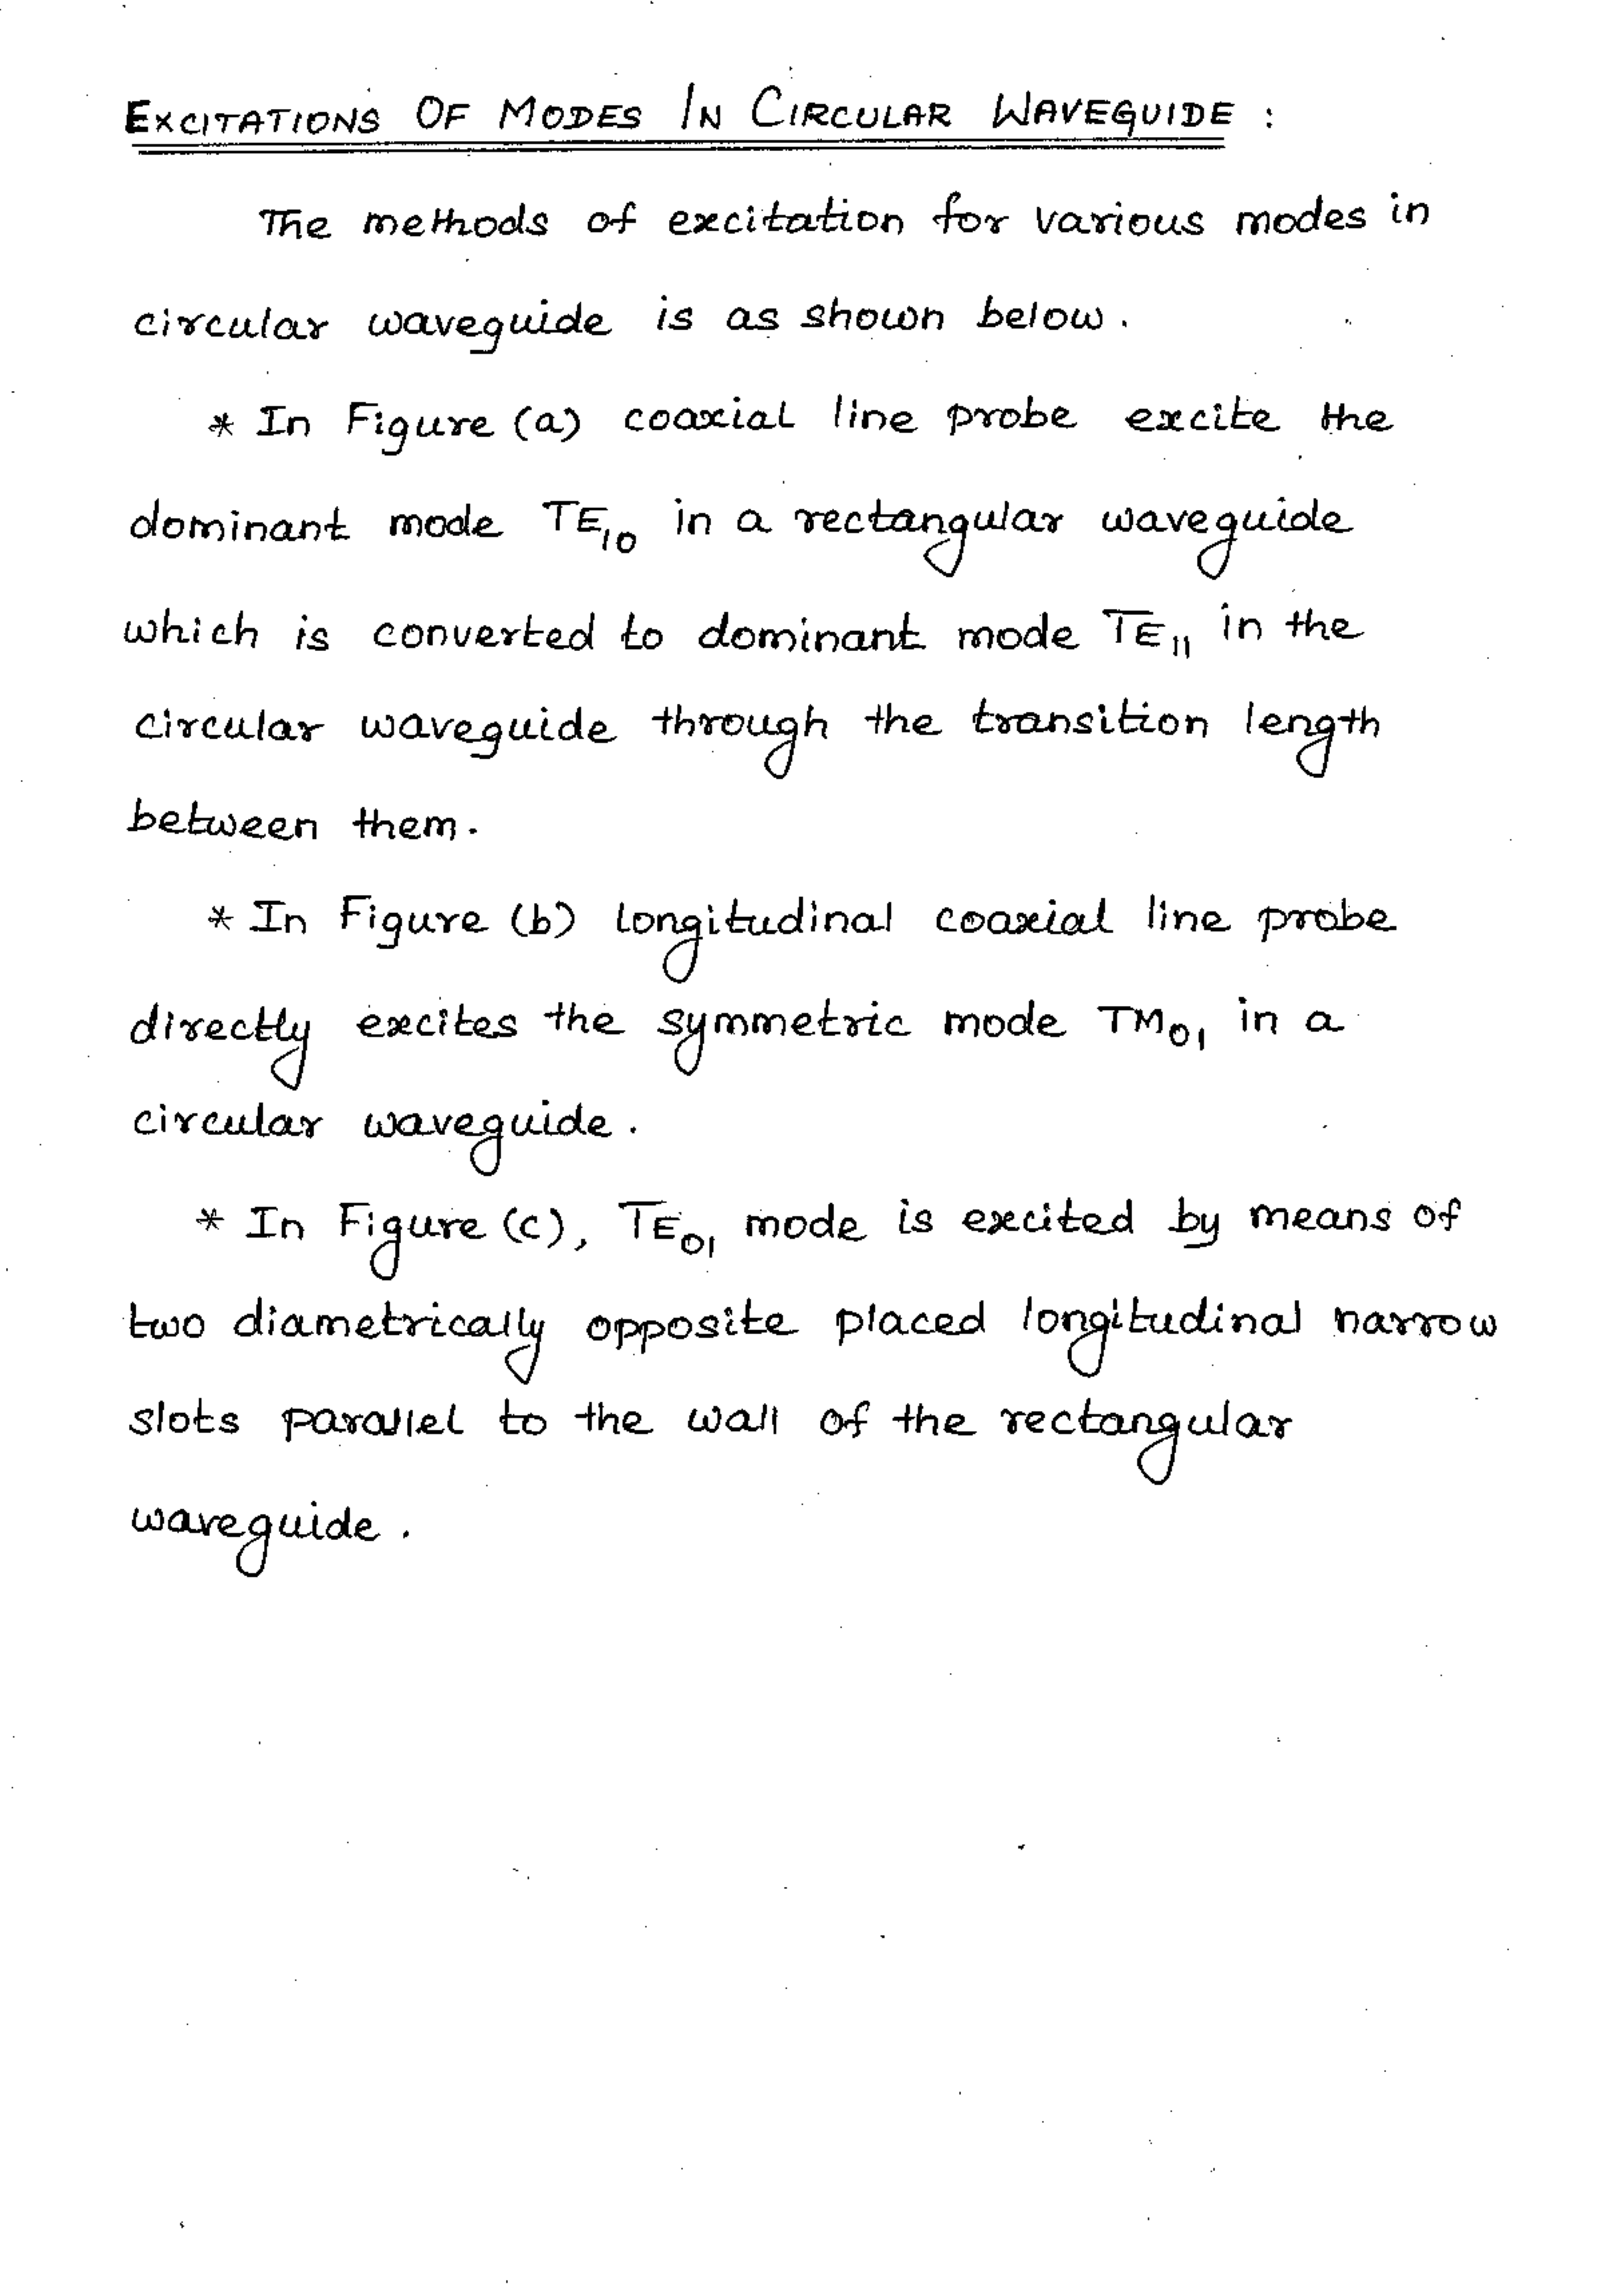 EXCITATIONS OF MODES IN CIRCULAR WAVEGUIDE :
The methods of excitation for various modes in
circular waveguide is as shown below.
* In Figure (a) coaxial line probe excite the
dominant mode TE₁₀ in a rectangular waveguide
which is converted to dominant mode TE₁₁ in the
circular waveguide through the transition length
between them.
* In Figure (b) longitudinal coaxial line probe
directly excites the symmetric mode TM₀₁ in a
circular waveguide.
* In Figure (c), TE₀₁ mode is excited by means of
two diametrically opposite placed longitudinal narrow
slots parallel to the wall of the rectangular
waveguide.